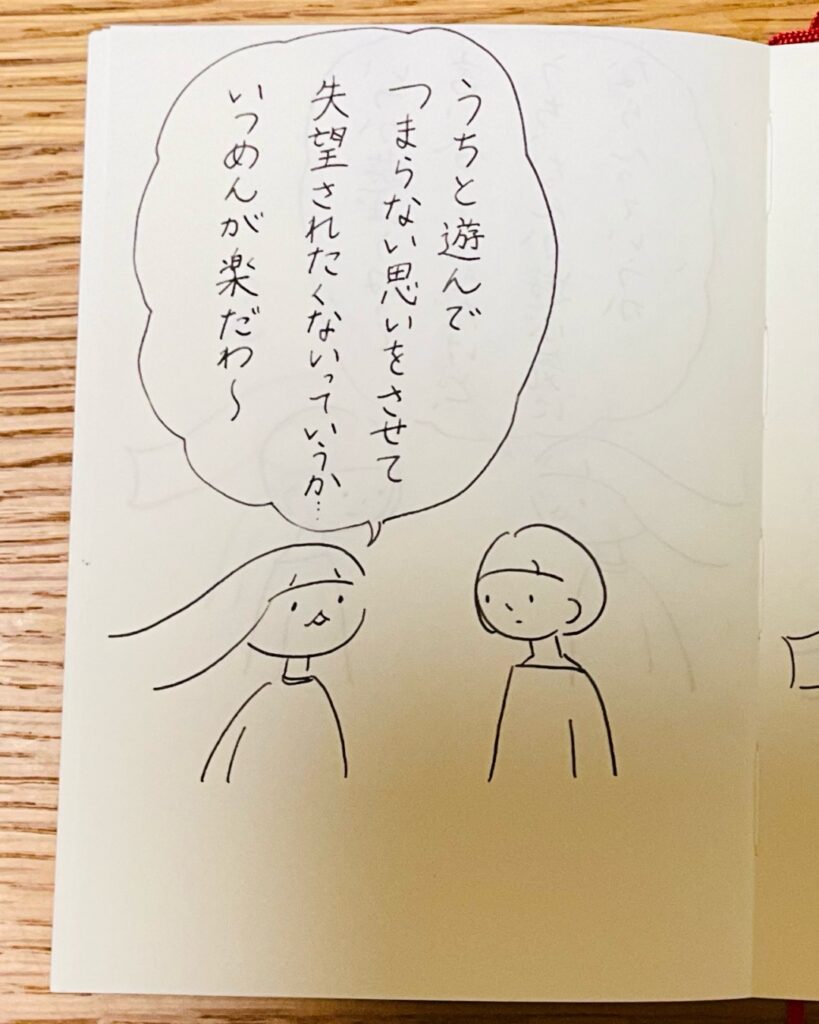 うちと遊んで
つまらない思いをさせて
失望されたくないっていうか…
いつめんが楽だわ〜